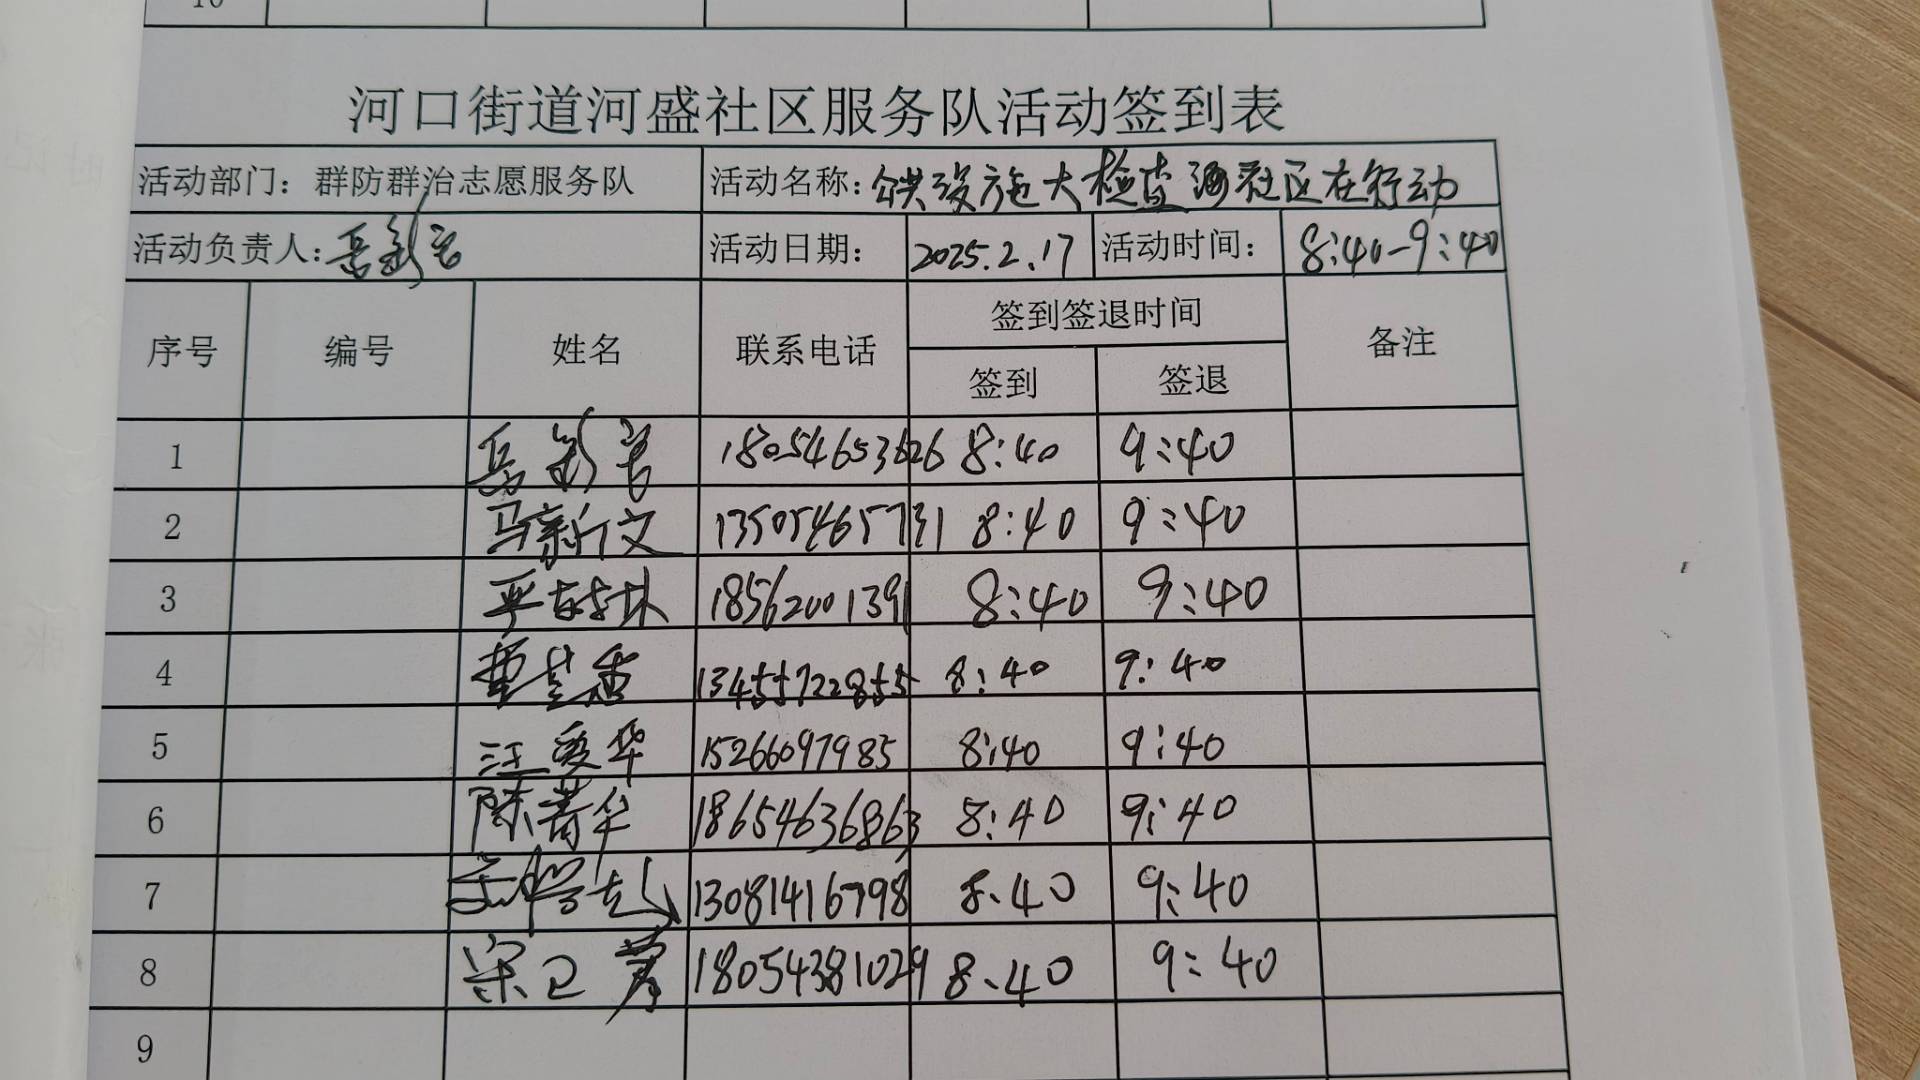 10
河口街道河盛社区服务队活动签到表
活动部门：群防群治志愿服务队 活动名称：公共设施大检查 社区在行动
活动负责人： 活动日期： 2025.2.17 活动时间： 8:40-9:40
序号 编号 姓名 联系电话 签到签退时间 备注
签到 签退
1 18054653626 8:40 9:40
2 马新文 13505465731 8:40 9:40
3 18562001391 8:40 9:40
4 13455722855 8:40 9:40
5 汪爱华 15266097985 8:40 9:40
6 陈菁华 18654636863 8:40 9:40
7 13081416798 8:40 9:40
8 梁卫芳 18054381029 8:40 9:40
9